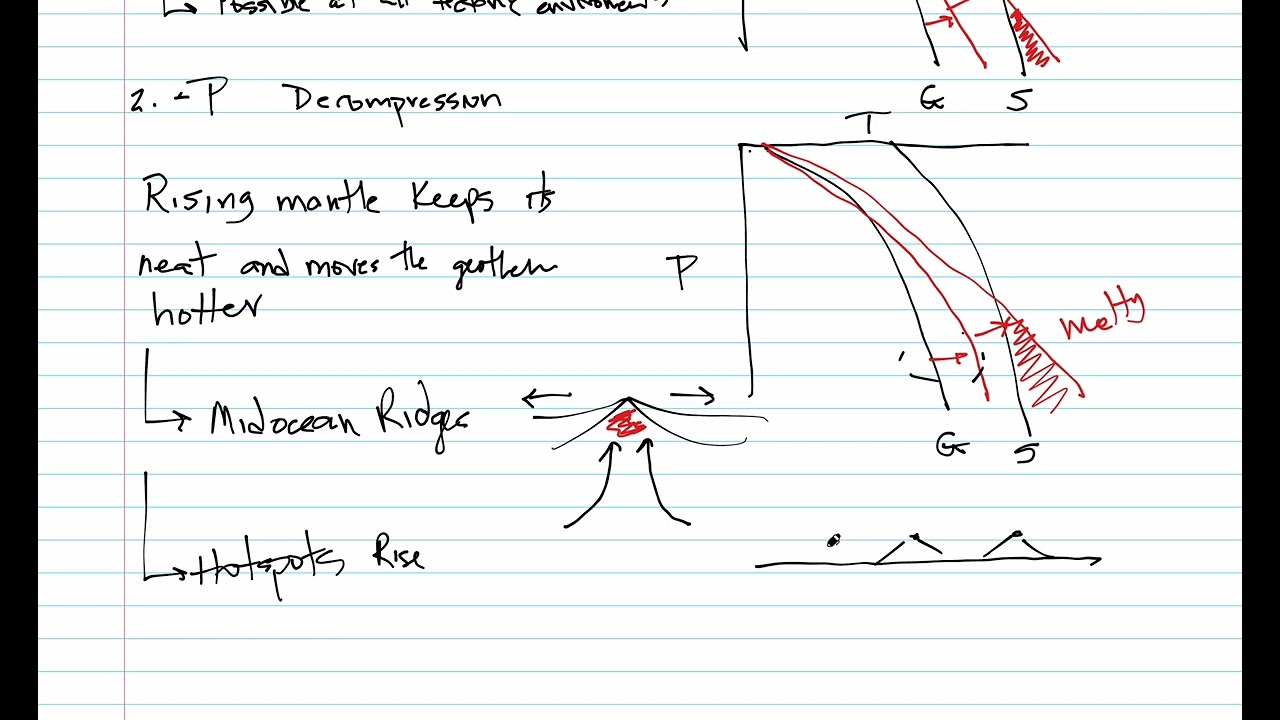 Possible at all tectonic environments
G S
2. -P Decompression
T
Rising mantle keeps its
heat and moves the geotherm
P
hotter
melty
Midocean Ridges
G S
Hotspots Rise